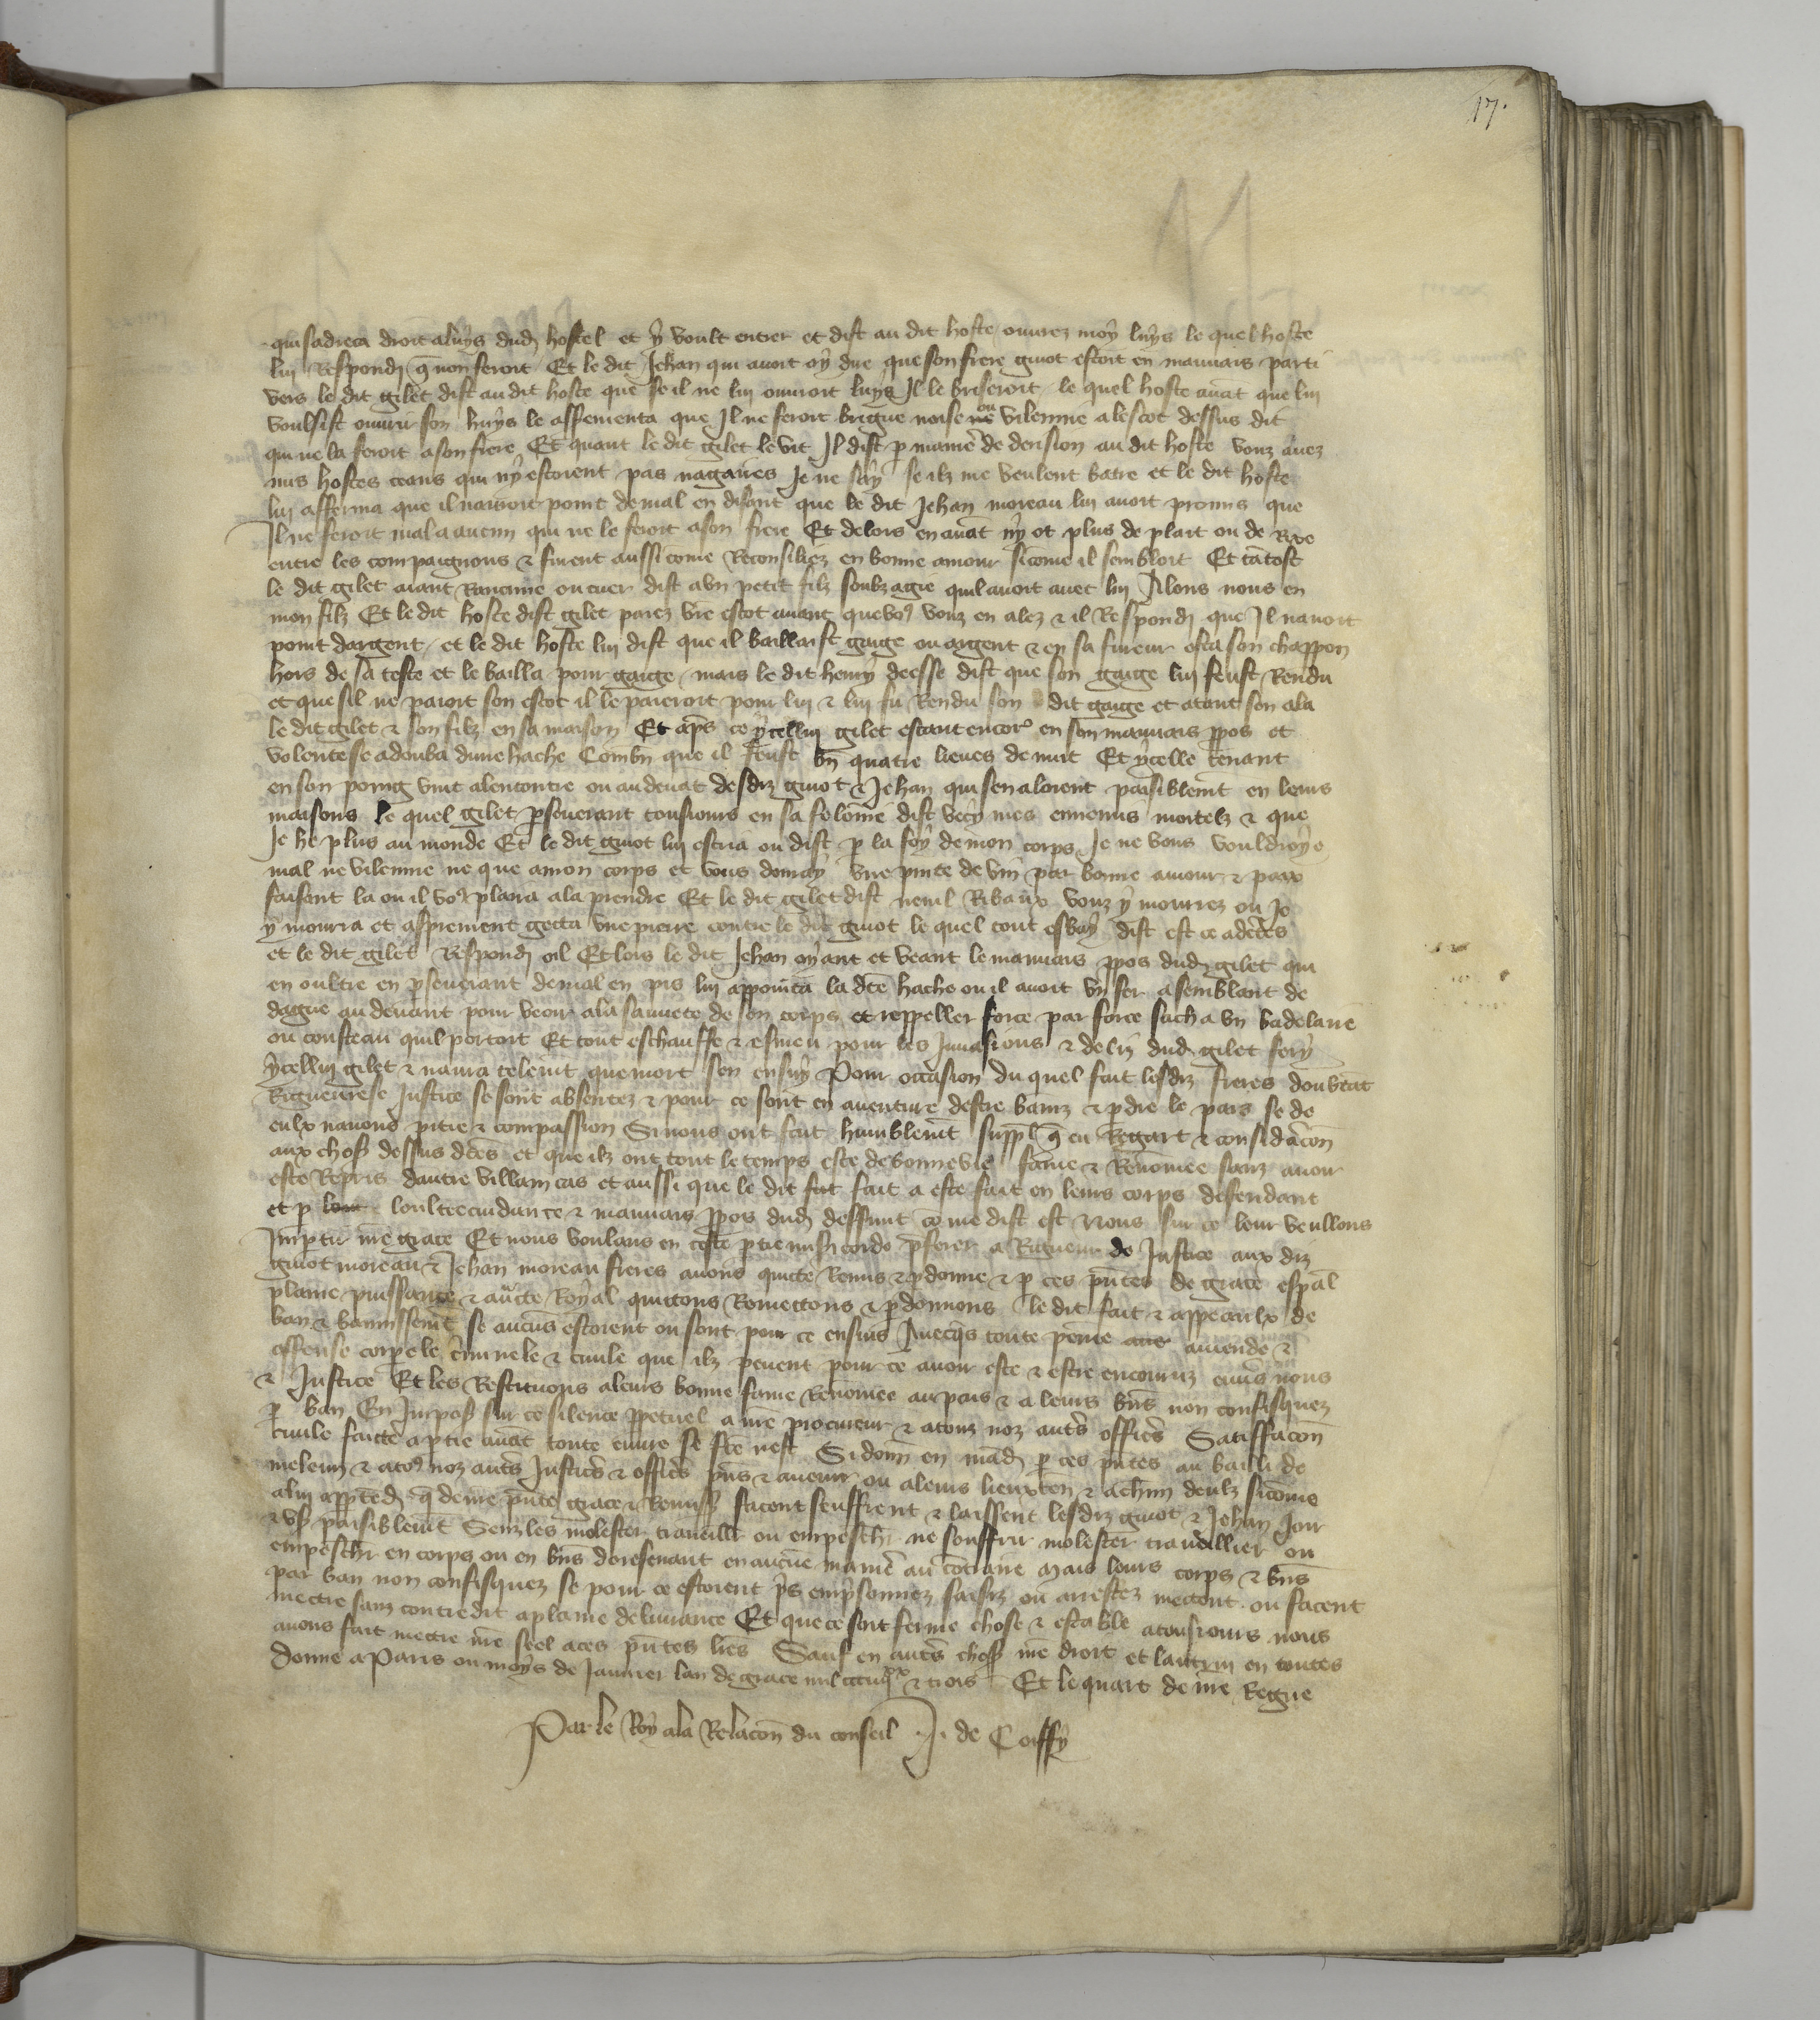 17.
qui sadreca droit a luys dud hostel et y voult entrer et dist au dit hoste ouurez moy luys le quel hoste
lui Respondi q̄ non feroit Et le dit Jehan qui auoit oy dire que son frere guiot estoit en mauuais parti
vers le dit gilet dist au dit hoste que se il ne lui ouuroit luys Il le briseroit le quel hoste auāt que lui
voulsist ouurir son huys le assermenta que Il ne feroit brigue noise ou vilennie a lescot dessus dit
qui ne la feroit a son frere Et quant le dit gilet le vit Il dist p maniē de derision au dit hoste vouz auez
mis hostes ceans qui ny estoient pas nagaires Je ne say se ilz me veulent batre et le dit hoste
lui afferma que il nauroit point de mal en disant que le dit Jehan moreau lui auoit promis que
Il ne feroit mal a aucun qui ne le feroit a son frere Et de lors en auāt ny ot plus de plait ou de Rixe
entre les compaignons & furent aussi come Reconsiliez en bonne amour sicome il sembloit Et tātost
le dit gilet aiant Rancune ou cuer dist a vn petit filz soubz agie quil auoit auec lui Alons nous en
mon filz Et le dit hoste dist gilet paiez vre escot auant que voꝰ vouz en alez & il Respondi que Il nauoit
point dargent et le dit hoste lui dist que il baillast gaige ou argent & en sa fureur osta son chappon
hors de sa teste et le bailla pour gaige mais le dit henry deesse dist que son gaige lui feust Rendu
et que sil ne paioit son escot il le paieroit pour lui & lui fu Rendu son dit gaige et atant sen ala
le dit gilet & son filz en sa maison Et ap̄s ce ycellui gilet estant encor en son mauuais ꝓpos et
volente se adouba dune hache Combn̄ que il feust bn̄ quatre lieues de nuit Et ycelle tenant
en son poing vint a lencontre ou au deuāt desdiz guiot & Jehan qui sen aloient paisiblemt̄ en leurs
maisons le quel gilet ꝑseuerant tousiours en sa felonie dist vecy mes ennemis mortelz & que
Je he plus au monde Et le dit guiot lui escria ou dist p la foy de mon corps Je ne vous vouldroye
mal ne vilennie ne que a mon corps et vous donray vne pinte de vin par bonne amour & paix
faisant la ou il voꝰ plaira a la prendre Et le dit gilet dist nenil Ribaux vouz y mourrez ou Je
y mourra et asprement gecta vne pierre contre le dit guiot le quel tout esbay dist est ce a certes
et le dit gilet Respondi oil Et lors le dit Jehan oyant et veant le mauuais ꝓpos dud gilet qui
en oultre en ꝑseuerant de mal en pis lui appointa la dcē hache ou il auoit vn fer a semblant de
dague au deuant pour veoir a la sauuete de son corps et reppeller force par force sacha vn badelaire
ou cousteau quil portoit Et tout eschauffe & esmeu pour les Jnuasions & deliz dud gilet fery
ycellui gilet & naura telemt̄ que mort sen ensuy Pour occasion du quel fait lesdiz freres doubtāt
Rigueureuse Justice se sont absentez & pour ce sont en auenture destre baniz & ꝑdre le pais se de
eulx nauons pitie & compassion Si nous ont fait humblemt̄ suppl q̄ en Regart & considacōn
aux choses dessus dcēs et que ilz ont tout le temps este de bonne vie fame & Renomee sanz auoir
este Repris dautre villain cas et aussi que le dit fait a este fait en leurs corps defendant
et p loultrecuidance & mauuais ꝓpos dud deffunt come dist est Nous sur ce leur veullons
Jmptir nr̄e grace Et nous voulans en ceste ꝑtie misicorde p̄ferer a Rigueur de Justice aux diz
guiot moreau & Jehan moreau freres auons quicte Remis & ꝑdonne & p ces pn̄tes de grace esp̄al
plaine puissance & aucte Royal quictons Remettons & ꝑdonnons le dit fait & appeaulx de
ban & banissemt̄ se aucūs estoient ou sont pour ce ensuis Auecq̄s toute peine amende &
offense corporele criminele & ciuile que ilz peuent pour ce auoir este & estre encouruz enu's nous
& Justice Et les Restituons a leurs bonne fame Renomee au pais & a leurs bn̄s non confisquez
p ban En Jmpos sur ce silence ꝑpetuel a nr̄e procureur & a touz noz aut's offic's Satiffacōn
ciuile faicte a ptie auāt toute euure se fcē nest Si donn en mad p ces pn̄tes au bailli de
meleun & a toꝰ noz aut's Justic's & offic's pn̄s & auenir ou a leurs lieuxten & a chūn deulz sicome
a lui apptēd q̄ de nr̄e pn̄te grace & Remiss facent seuffrent & laissent lesdiz guiot & Jehan Joir
& vs paisiblemt̄ Senz les molester trauaill' ou empesch' ne souffrir molester trauaillier ou
empesch' en corps ou en bn̄s doresenauant en aucūe maniē au cōtraire Mais leurs corps & bn̄s
par ban non confisquez se pour ce estoient p's emp'sonnez saisiz ou arrestez mettent ou facent
mectre sanz contredit a plaine deliurance Et que ce soit ferme chose & estable a tousiours nous
auons fait mectre nr̄e seel a ces pn̄tes lr̄es Sauf en aut's choses nr̄e droit et lautrui en toutes
Donne a Paris ou moys de Januier lan de grace mil ccc iiijxx & trois Et le quart de nr̄e Regne
Par le Roy a la Relacōn du conseil J. de Coiffy